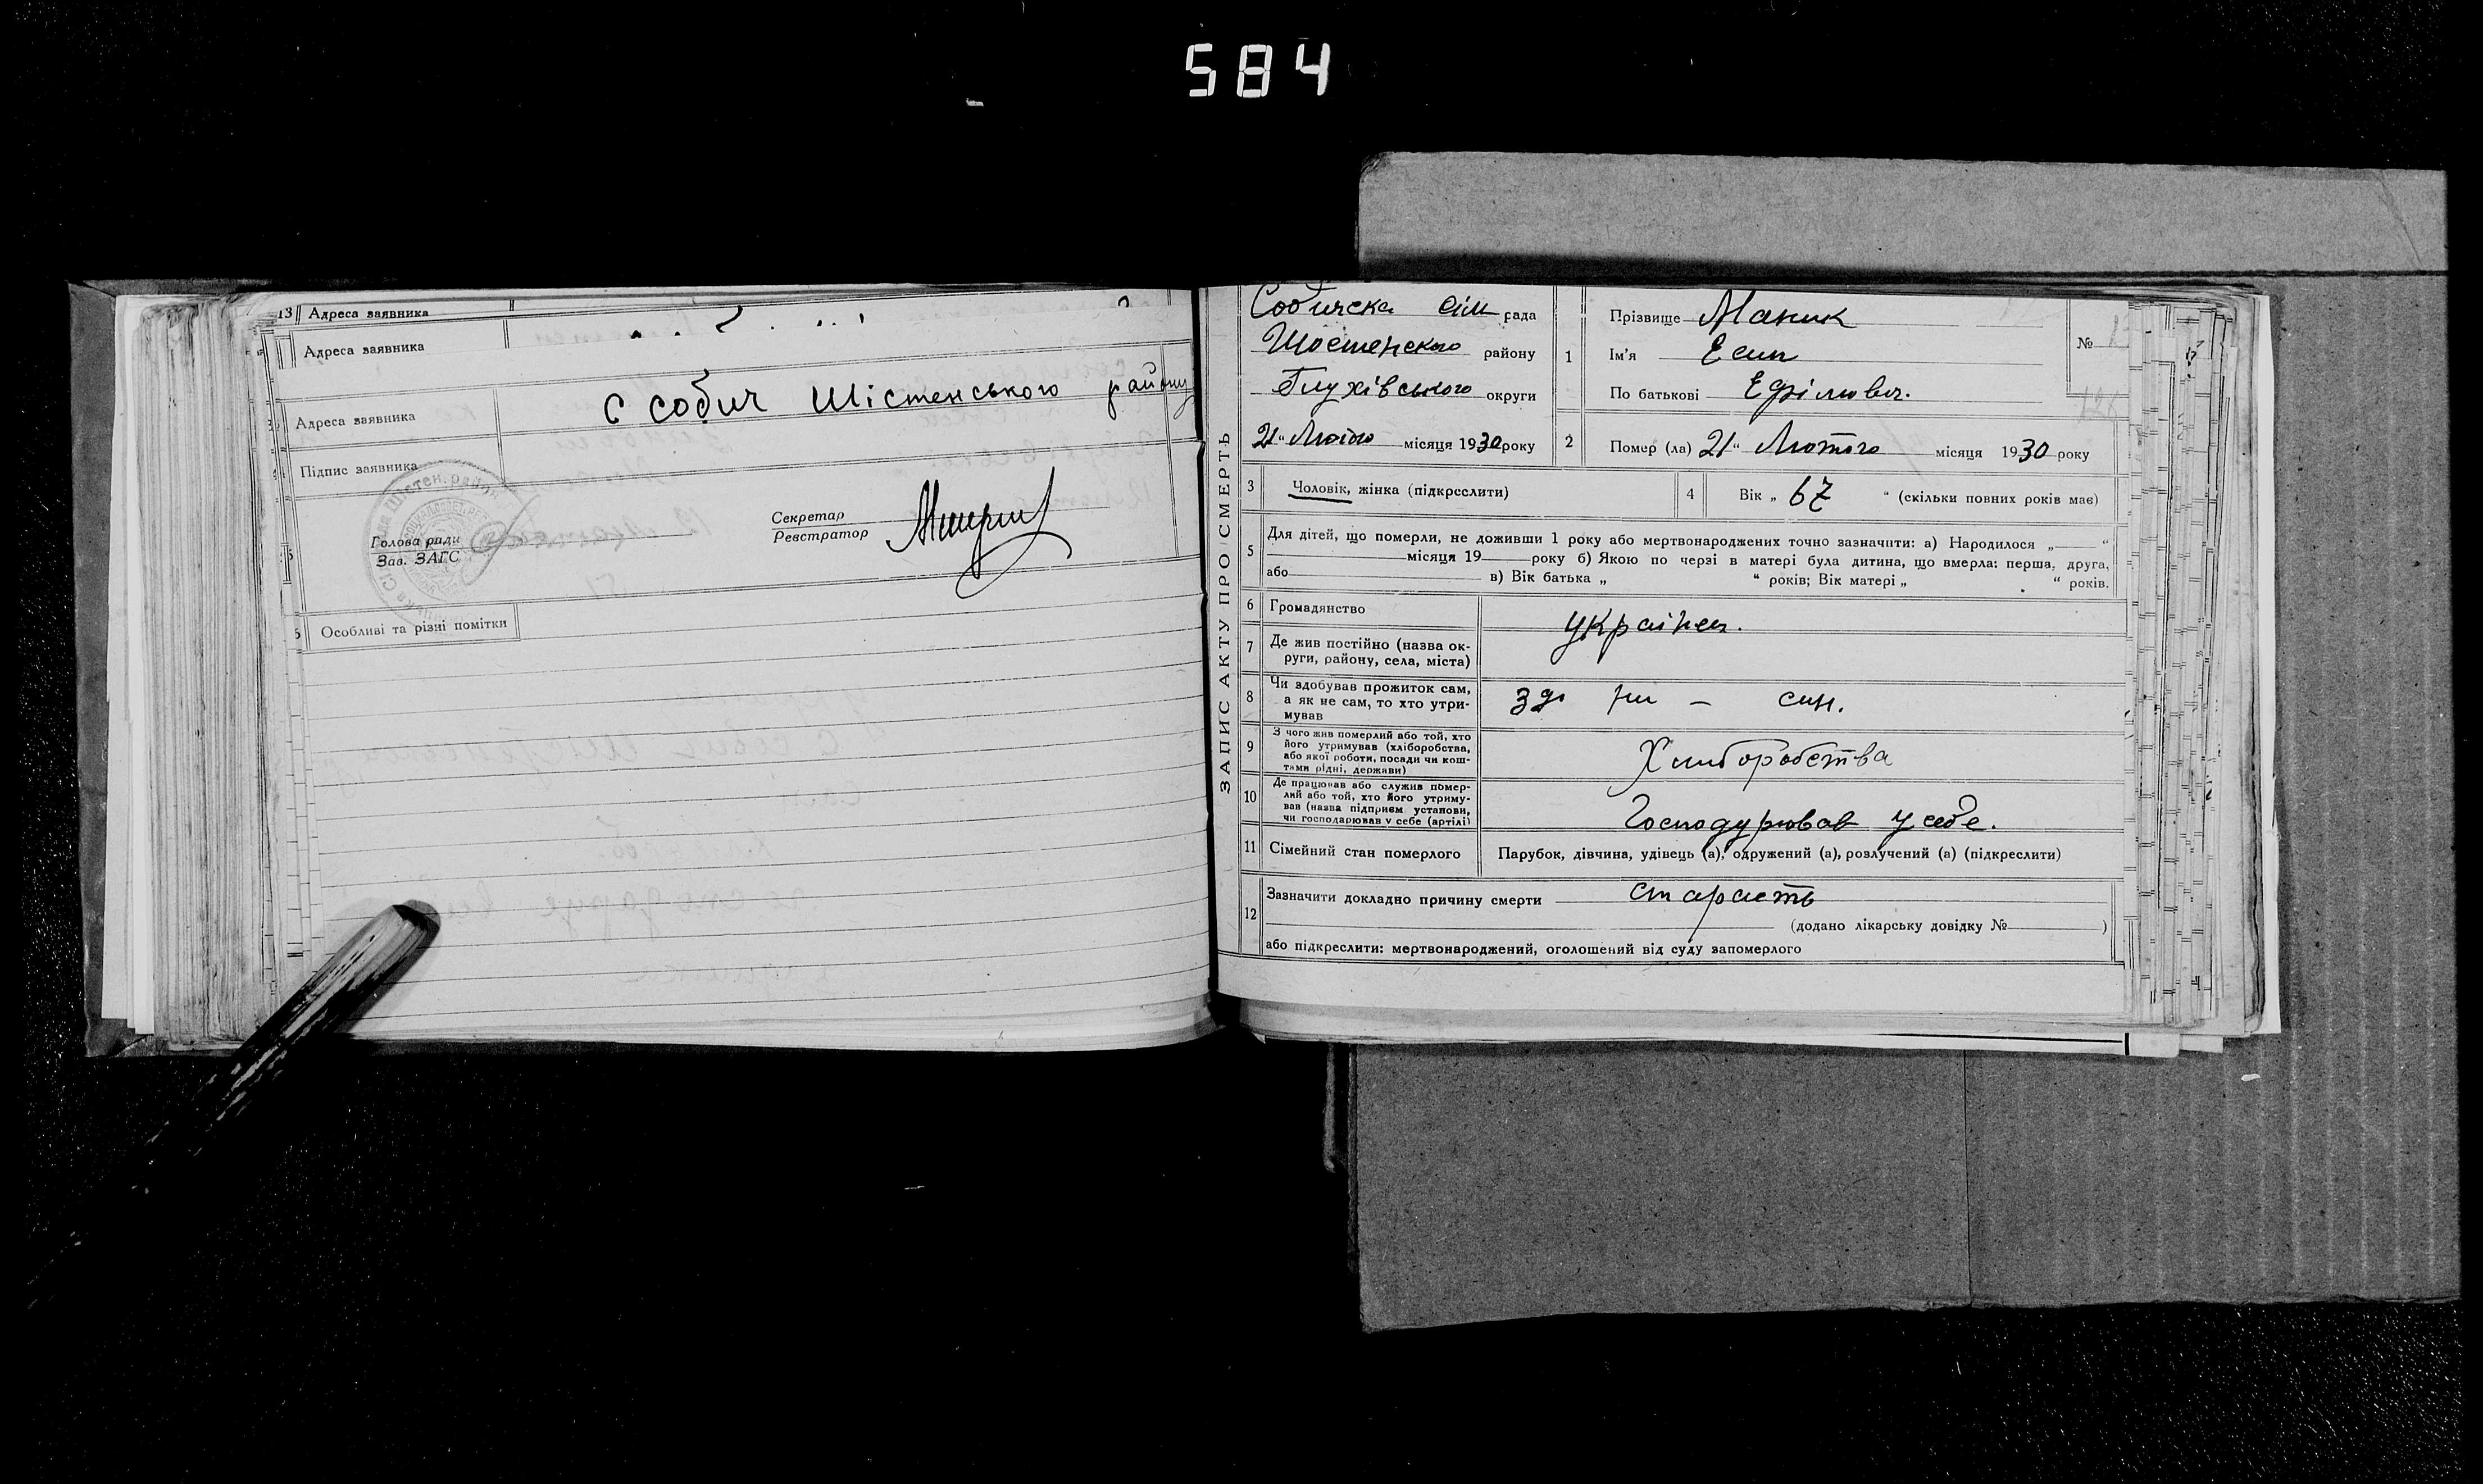 584
13 Адреса заявника
Адреса заявника
Адреса заявника С Собич Шістенського району
Підпис заявника
Голова ради
Зав. ЗАГС
Секретар
Реєстратор
Особливі та різні помітки
ЗАПИС АКТУ ПРО СМЕРТЬ
Собичска сім рада
Шостенского району
Глухівського округи
21 " Лютого місяця 1930 року
1 Прізвище Маник
Ім'я Есип
По батькові
№
2 Помер (ла) 21 " Лютого місяця 1930 року
3 Чоловік, жінка (підкреслити)
4 Вік „ 67 " (скільки повних років має)
5 Для дітей, що померли, не доживши 1 року або мертвонароджених точно зазначити: а) Народилося „ "
місяця 19 року б) Якою по черзі в матері була дитина, що вмерла: перша, друга,
або в) Вік батька „ " років; Вік матері „ " років.
6 Громадянство українец.
7 Де жив постійно (назва округи, району, села, міста)
8 Чи здобував прожиток сам, а як не сам, то хто утримував – син.
9 З чого жив померлий або той, хто його утримував (хліборобства, або якої роботи, посади чи коштами рідні, держави) Хлиборобства
10 Де працював або служив померлий або той, хто його утримував (назва підприєм установи, чи господарював у себе (артілі) Господурював у себе.
11 Сімейний стан померлого Парубок, дівчина, удівець (а), одружений (а), розлучений (а) (підкреслити)
12 Зазначити докладно причину смерти старасть
(додано лікарську довідку № )
або підкреслити: мертвонароджений, оголошений від суду запомерлого